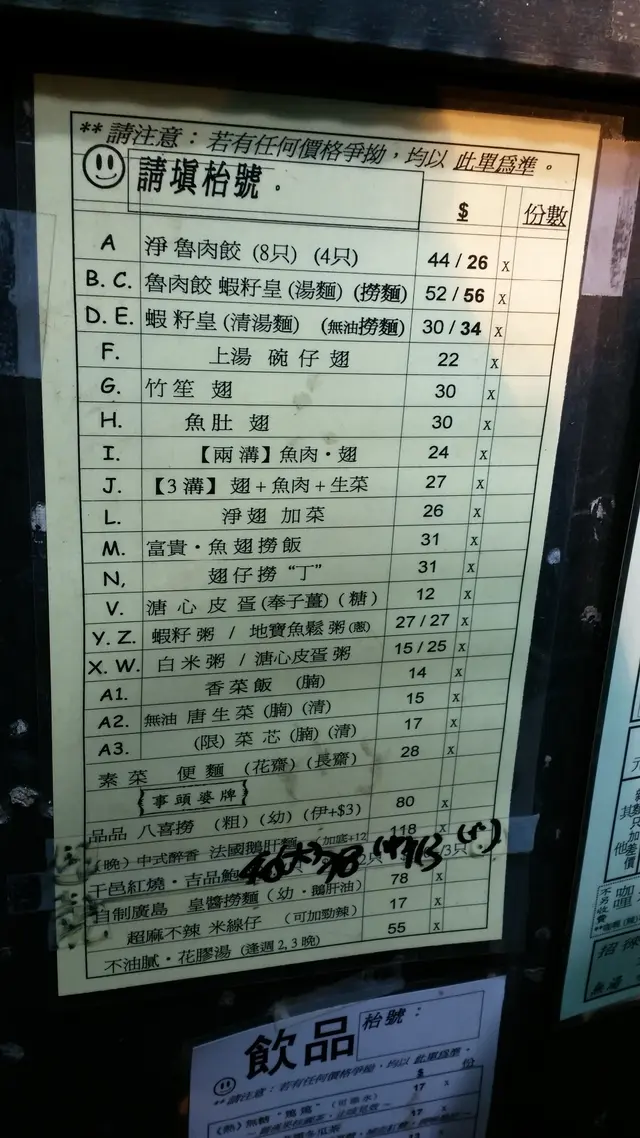 ** 請注意：若有任何價格爭拗，均以 此單為準。
請填枱號．
$ 份數
A 淨 魯肉餃 (8只) (4只) 44 / 26 x
B. C. 魯肉餃 蝦籽皇 (湯麵) (撈麵) 52 / 56 x
D. E. 蝦 籽皇 (清湯麵) (無油撈麵) 30 / 34 x
F. 上湯 碗 仔 翅 22 x
G. 竹笙 翅 30 x
H. 魚肚 翅 30 x
I. 【兩溝】魚肉・翅 24 x
J. 【3 溝】 翅 + 魚肉 + 生菜 27 x
L. 淨翅 加菜 26 x
M. 富貴・魚翅撈飯 31 x
N, 翅仔撈 “丁” 31 x
V. 溏 心 皮 蛋 (奉子薑) ( 糖 ) 12 x
Y. Z. 蝦籽 粥 / 地寶魚鬆 粥 (葱) 27 / 27 x
X. W. 白 米 粥 / 溏心皮蛋 粥 15 / 25 x
A1. 香菜飯 (腩) 14 x
A2. 無油 唐生菜 (腩) (清) 15 x
A3. (限) 菜 芯 (腩) (清) 17 x
素 菜 便 麵 (花齋) (長齋) 28 x
事頭婆牌
品品 八喜撈 (粗) (幼) (伊+$3) 80 x
(晚) 中式醉香 法國鵝肝麵 (加底+12 118 x
干邑紅燒・吉品鮑 /3只
自制廣島 皇醬撈麵 (幼・鵝肝油) 78 x
超麻不辣 米線仔 (可加勁辣) 17 x
不油膩・花膠湯 (逢週 2, 3 晚) 55 x
飲品 枱號：
** 請注意：若有任何價格爭拗，均以 此單為準．
$ 份
(熱) 無糖 17 x
17 x
元
咖
哩
不另收費
招